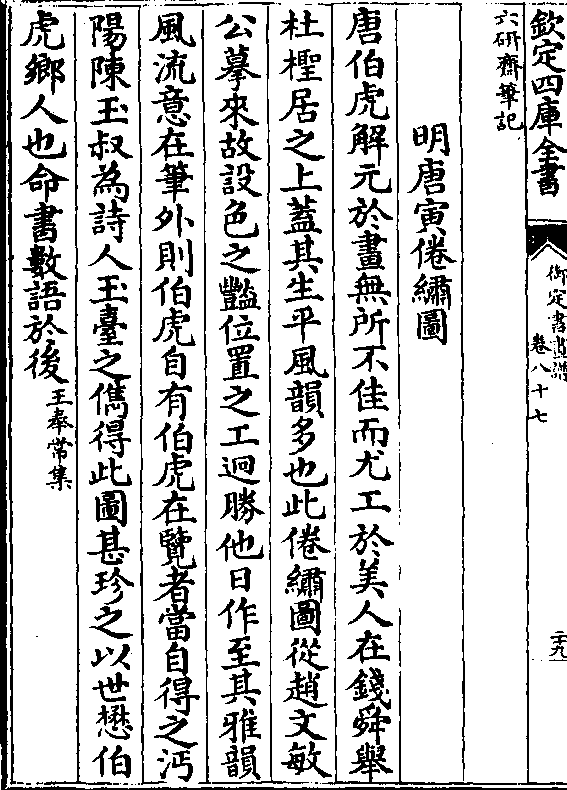 欽定四庫全書
御定書畫譜
卷八十七
二十九
六研齋筆記
明唐寅倦繡圖
唐伯虎解元於畫無所不佳而尤工於美人在錢舜舉
杜檉居之上蓋其生平風韻多也此倦繡圖從趙文敏
公摹來故設色之豔位置之工迥勝他日作至其雅韻
風流意在筆外則伯虎自有伯虎在覽者當自得之沔
陽陳玉叔為詩人玉臺之儁得此圖甚珍之以世懋伯
虎鄉人也命書數語於後王奉常集